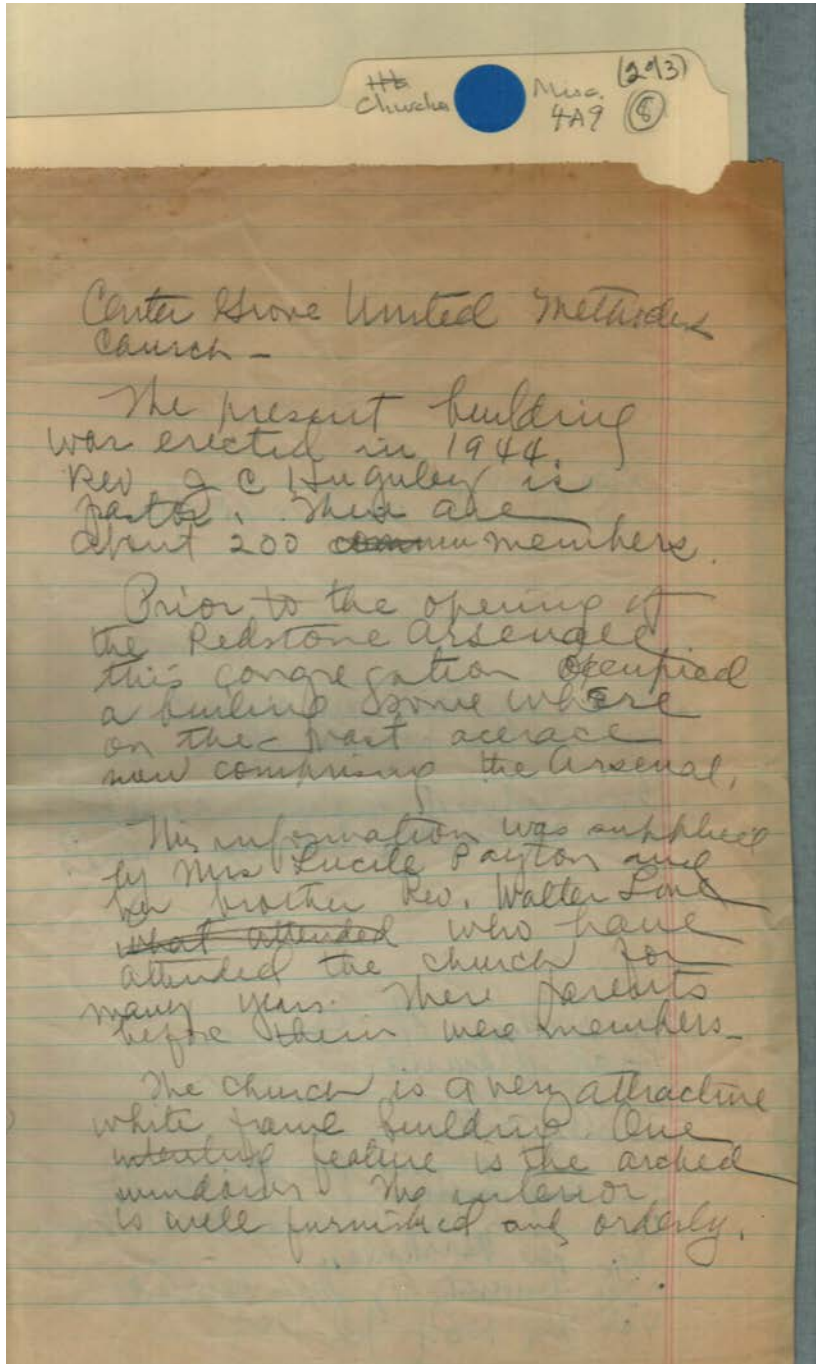 (2 of 3)
Churches Misc.
4A9 8
Center Grove United Methodist
Church –
The present building
was erected in 1944.
Rev J C Huguley is
pastor. There are
about 200 members.
Prior to the opening of
the Redstone Arsenal
this congregation occupied
a building some where
on the vast acerace
now comprising the Arsenal.
This information was supplied
by Mrs Lucile Payton and
her brother Rev. Walter
what attended who have
attended the church for
many years. There parents
before them were members –
The church is a very attractive
white frame building. One
feature is the arched
windows. The interior
is well furnished and orderly.